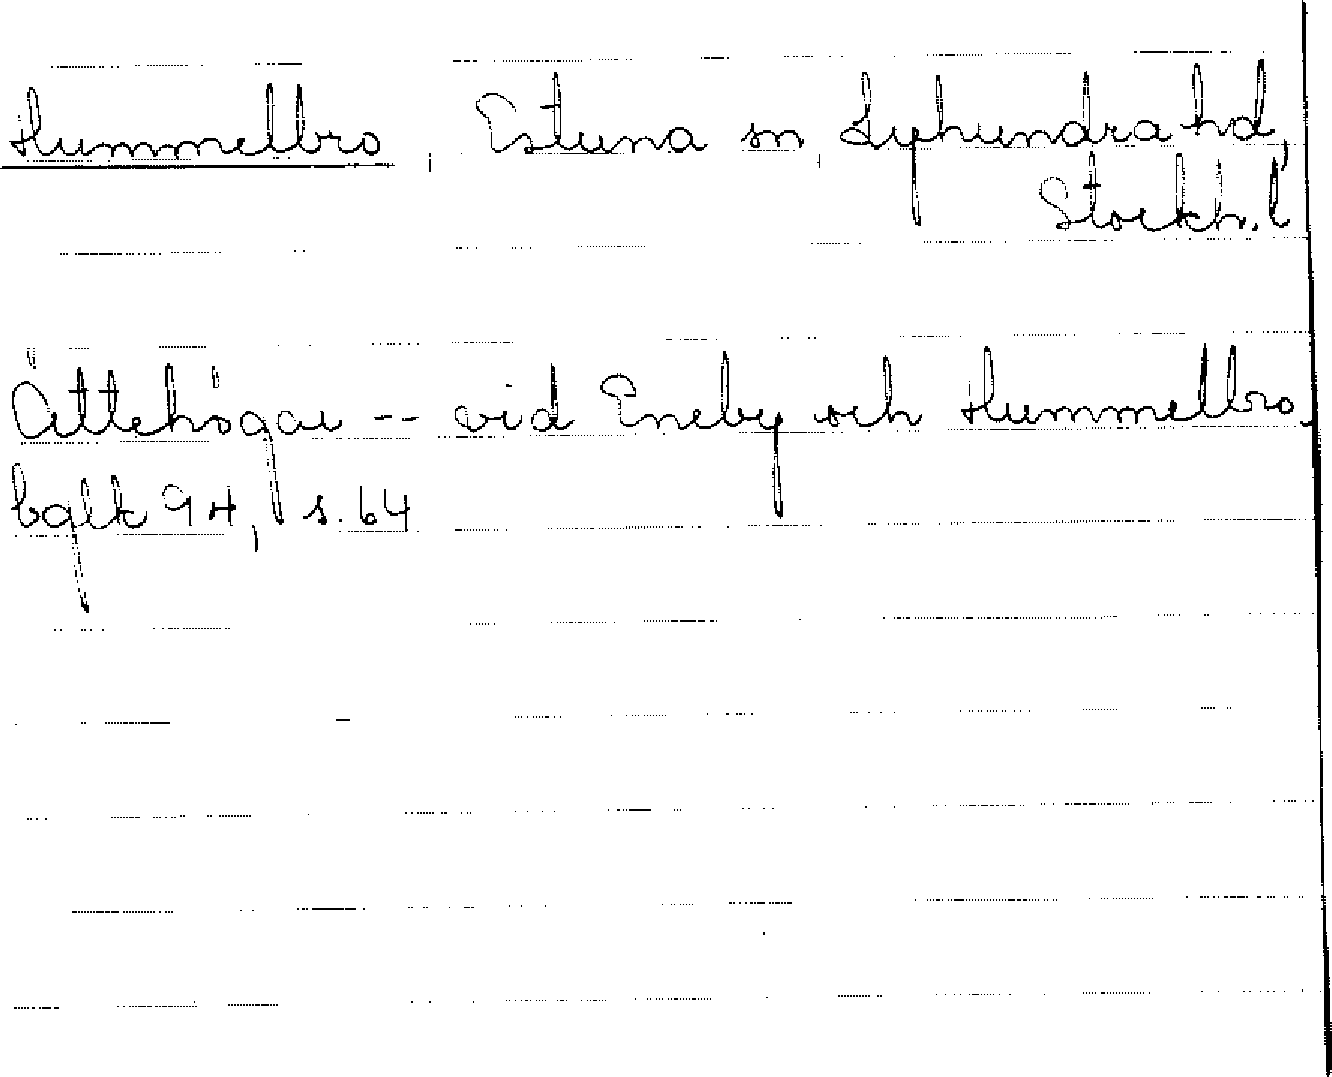 Hummelbro, Estuna sn, Lyhundra hd,
Stockh. l
Ättehögar -- vid Eneby och Hummelbro.
bglk 94, s. 64